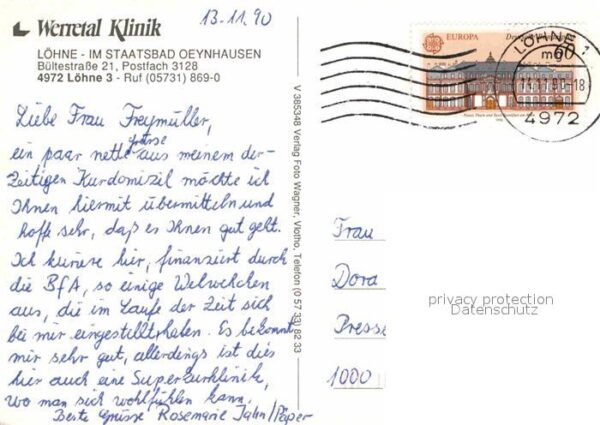 Werretal Klinik
LÖHNE - IM STAATSBAD OEYNHAUSEN
Bültestraße 21, Postfach 3128
4972 Löhne 3 - Ruf (05731) 869-0
13.11.90
Liebe Frau Freymüller,
ein paar nette Grüsse aus meinem der-
zeitigen Kurdomizil möchte ich
Ihnen hiermit übermitteln und
hoffe sehr, daß es Ihnen gut geht.
Ich kuriere hier, finanziert durch
die BfA, so einige Wehwehchen
aus, die im Laufe der Zeit sich
bei mir eingestellt haben. Es bekommt
mir sehr gut, allerdings ist dies
hier auch eine Superkurklinik,
wo man sich wohlfühlen kann.
Beste Grüsse Rosemarie Jahn/Pieper
V 385348 Verlag Foto Wagner, Vlotho, Telefon (0 57 33) 82 33
EUROPA
60
LÖHNE 1
4972
Frau
Dora
Presse
1000
privacy protection
Datenschutz